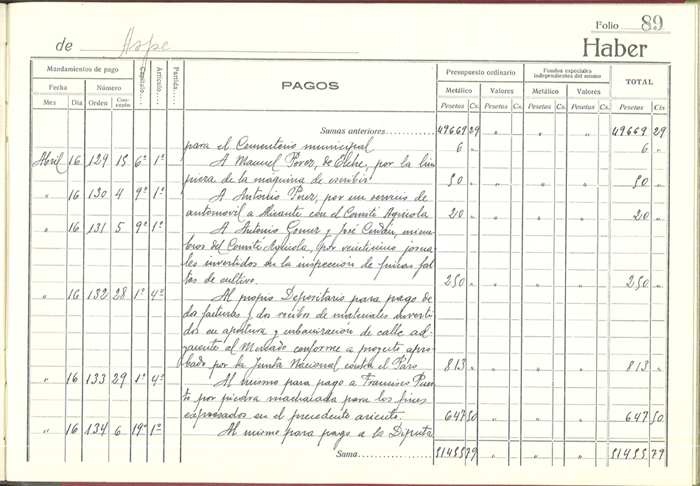 Folio 89
de Aspe Haber
Mandamientos de pago Capítulo Artículo Partida PAGOS Presupuesto ordinario Fondos especiales independientes del mismo TOTAL
Fecha Número Metálico Valores Metálico Valores
Mes Día Orden Concepto Pesetas Cs. Pesetas Cs. Pesetas Cs. Pesetas Cs. Pesetas Cts
Sumas anteriores 49669 29 " " " 49669 29
para el Cementerio municipal 6 " 6 "
Abril 16 129 15 6º 1º A Manuel Perez, de Elche, por la lim
pieza de la maquina de escribir 50 " " " " 50 "
" 16 130 4 9º 1º A Antonio Perez, por un servicio de
automovil a Alicante con el Comité Agricola 20 " " " " 20 "
" 16 131 5 9º 1º A Antonio Gomez y José Cerdán, miem
bros del Comité Agricola, por veinticinco jorna
les invertidos en la inspección de fincas fal
tas de cultivo. 250 " " " " 250 "
" 16 132 28 1º 4º Al propio Depositario para pago de
dos facturas y dos recibos de materiales inverti
dos en apertura y urbanización de calle ad
yacente al Mercado conforme a proyecto apro
bado por la Junta Nacional contra el Paro 813 " " " " 813 "
" 16 133 29 1º 4º Al mismo para pago a Francisco
por piedra machacada para los fines
expresados en el precedente asiento. 647 50 " " " 647 50
" 16 134 6 19º 1º Al mismo para pago a la Diputa
Suma 51455 79 " " " 51455 79